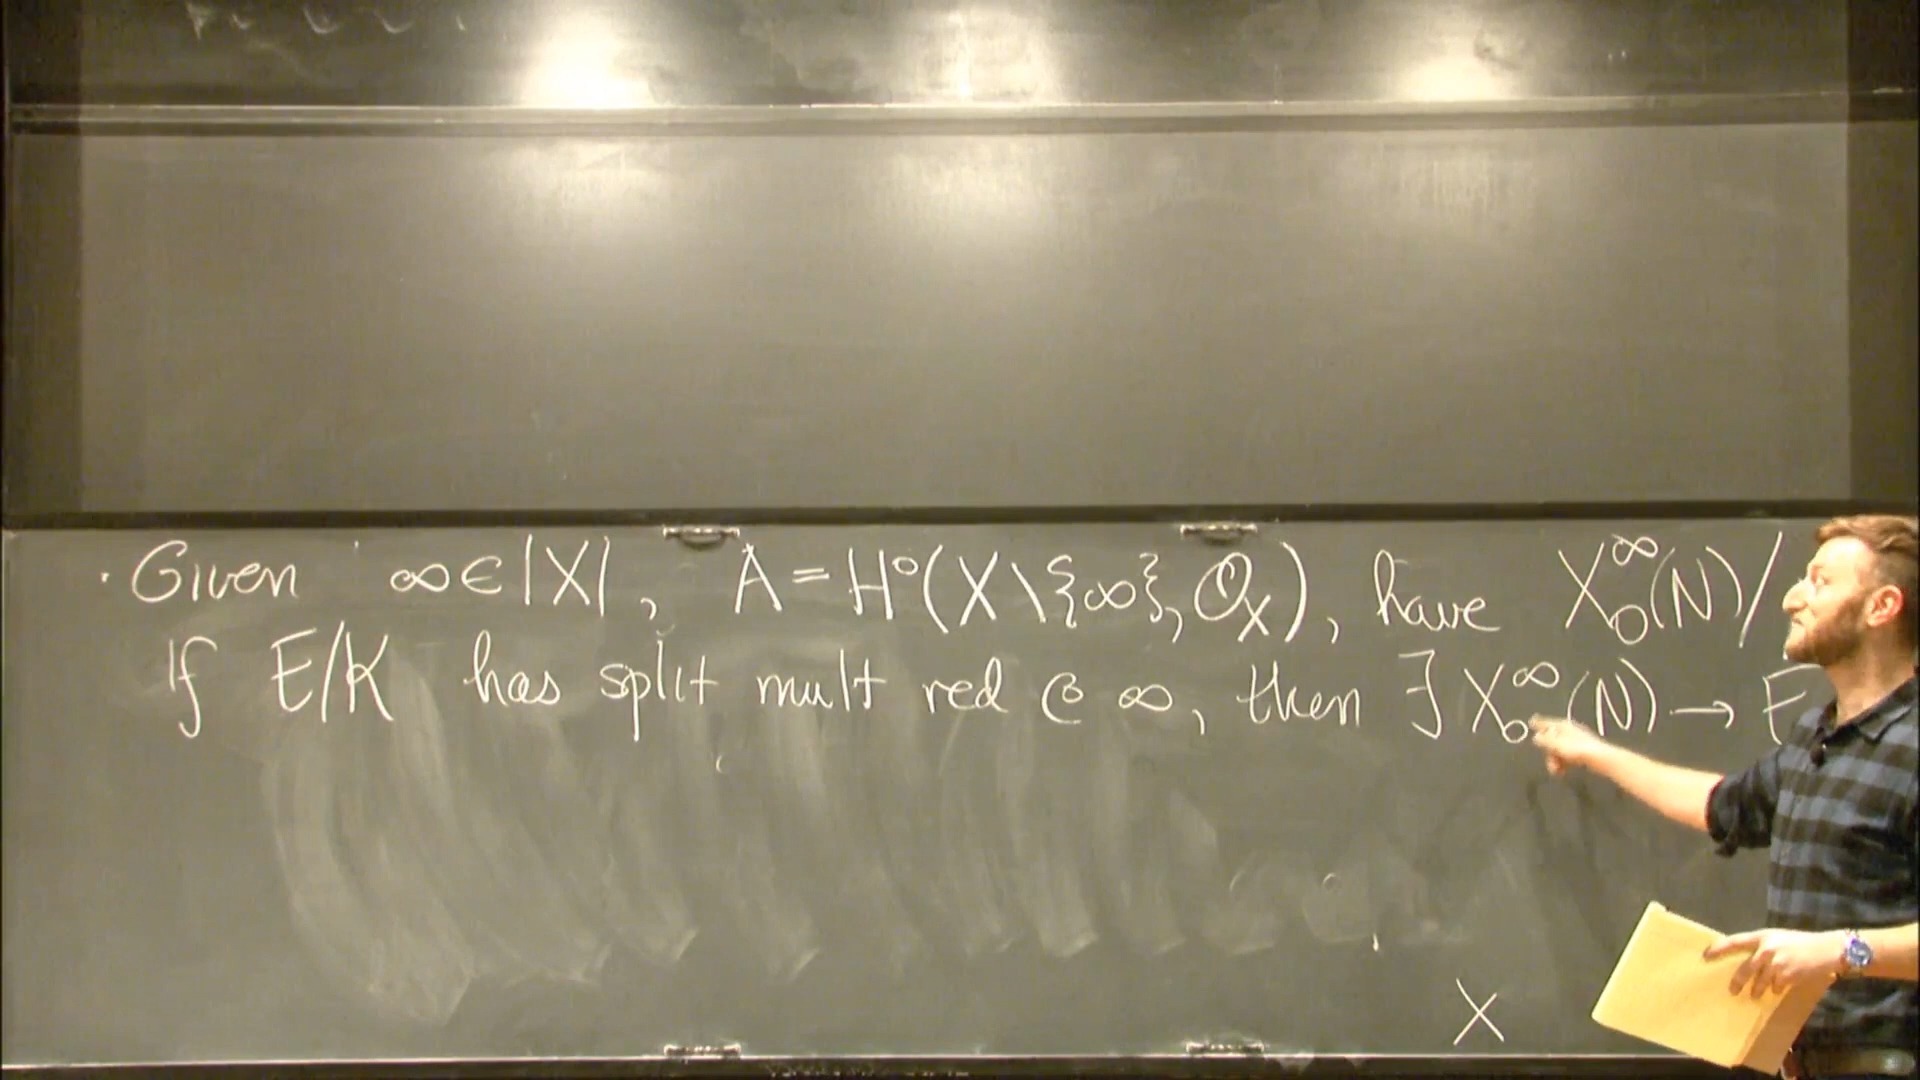 · Given ∞∈|X|, A = H⁰(X\{∞}, 𝒪_X), have X₀^∞(N)/
If E/K has split mult red @ ∞, then ∃ X₀^∞(N) → E
X